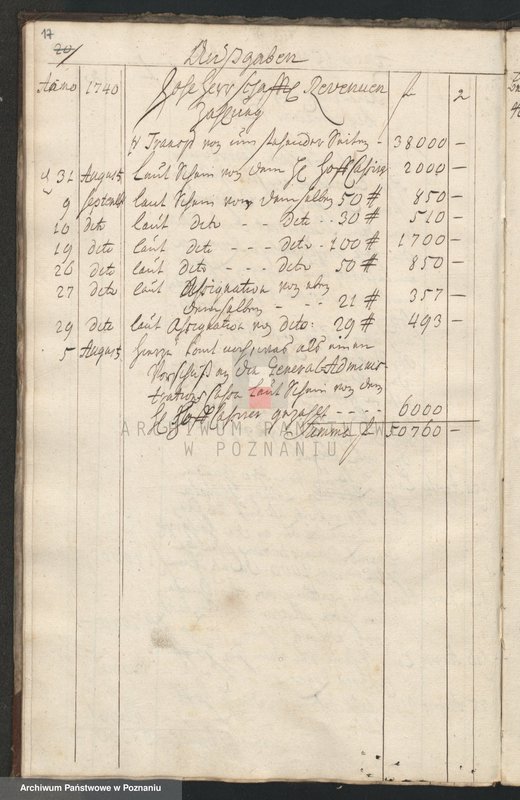 17
20
Ausgaben
Anno 1740 Hoch Herrschafftl Revenuen f
Zahlung
Transp von 38000 –
d 31 August laut Schein von dem H Hoff Cassirer 2000 –
9 Septembr laut Schein von demselben 50 # 850 –
10 deto laut deto - - deto - - 30 # 510 –
19 deto laut deto - - - deto - 100 # 1700 –
26 deto laut deto - - - deto 50 # 850 –
27 deto laut Assignation von
demselben - - - 21 # 357 –
29 deto laut Assignation von deto: 29 # 493 –
5 August als einen
Vorschuß an die General Adminis-
trations Cassa laut Schein von dem
H Hoff Cassirer gezahlt - - - - 6000
Summa f 50760 –
ARCHIWUM PAŃSTWOWE
W POZNANIU
Archiwum Państwowe w Poznaniu